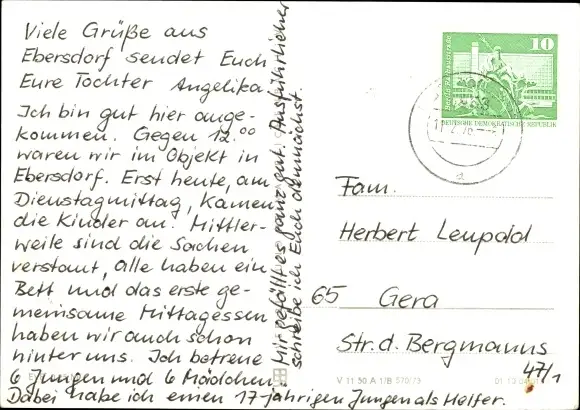 Viele Grüße aus
Ebersdorf sendet Euch
Eure Tochter Angelika.
Ich bin gut hier ange-
kommen. Gegen 12.00
waren wir im Objekt in
Ebersdorf. Erst heute, am
Dienstagmittag, kamen
die Kinder an. Mittler-
weile sind die Sachen
verstaut, alle haben ein
Bett und das erste ge-
meinsame Mittagessen
haben wir auch schon
hinter uns. Ich betreue
6 Jungen und 6 Mädchen.
Dabei habe ich einen 17-jährigen Jungen als Helfer.
Mir gefällt es ganz gut. Ausführlicher
schreibe ich Euch demnächst.
10
DEUTSCHE DEMOKRATISCHE REPUBLIK
Fam.
Herbert Leupold
65 Gera
Str. d. Bergmanns
47/1
V 11 50 A 1/B 570/73